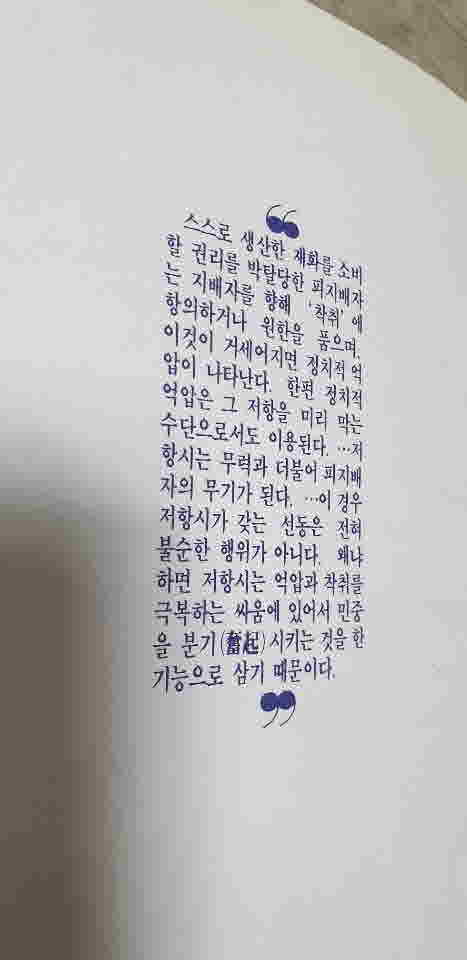 ❝
스스로 생산한 재화를 소비
할 권리를 박탈당한 피지배자
는 지배자를 향해 '착취'에
항의하거나 원한을 품으며,
이것이 거세어지면 정치적 억
압이 나타난다. 한편 정치적
억압은 그 저항을 미리 막는
수단으로서도 이용된다. …저
항시는 무력과 더불어 피지배
자의 무기가 된다. …이 경우
저항시가 갖는 선동은 전혀
불순한 행위가 아니다. 왜냐
하면 저항시는 억압과 착취를
극복하는 싸움에 있어서 민중
을 분기(奮起)시키는 것을 한
기능으로 삼기 때문이다.
❞